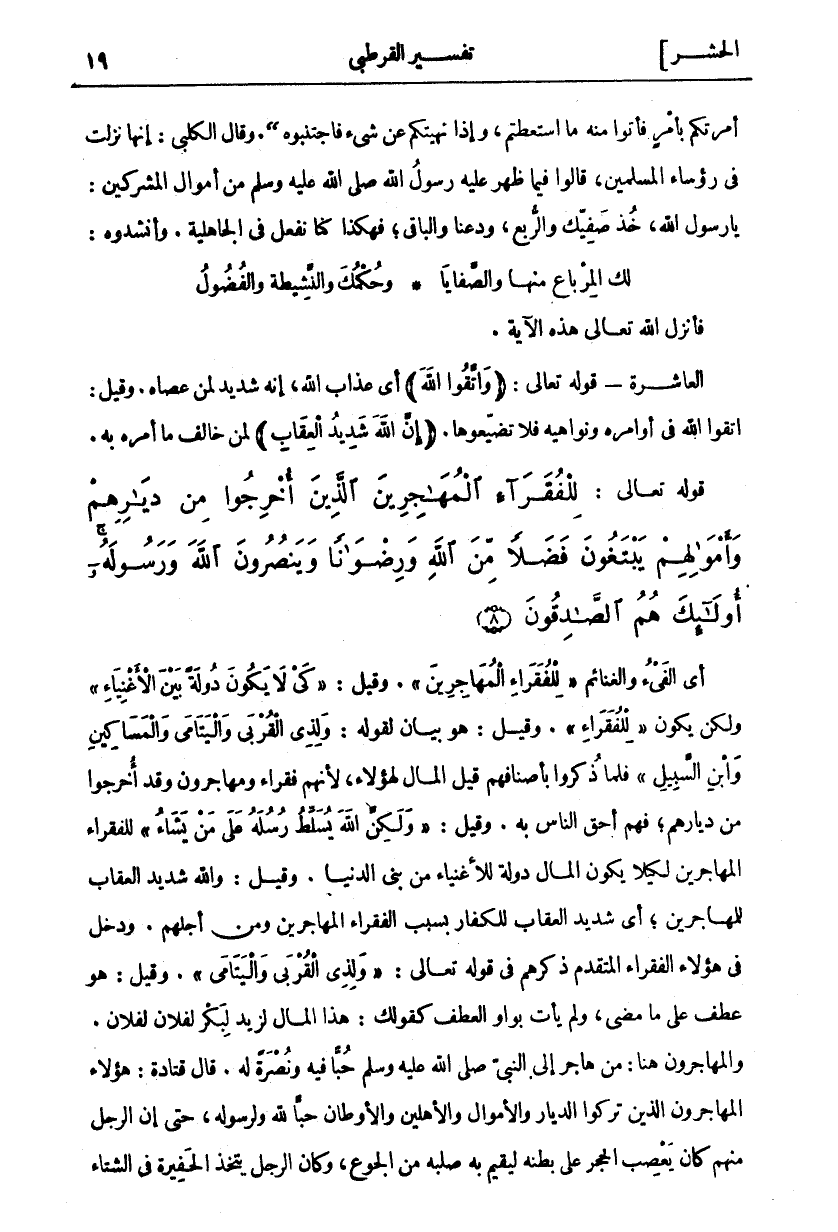 الحشر ] تفسير القرطبي ١٩
أمرتكم بأمْرٍ فأتوا منه ما استعطتم، وإذا نهيتكم عن شىء فاجتنبوه“. وقال الكلبي : إنها نزلت
فى رؤساء المسلمين، قالوا فيما ظهر عليه رسولُ الله صلى الله عليه وسلم من أموال المشركين :
يارسول الله، خُذ صَفِيّك والرُّبع، ودعنا والباقى؛ فهكذا كنا نفعل فى الجاهلية . وأنشدوه :
لك المِرْباع منهـا والصَّفايَا * وحُكْمُكَ والنَّشِيطة والفُضُولُ
فأنزل الله تعـالى هذه الآية .
العاشـــرة – قوله تعالى : ﴿وَاتَّقُوا اللَّهَ﴾ أى عذاب الله، إنه شديد لمن عصاه. وقيل :
اتقوا الله فى أوامره ونواهيه فلا تضيّعوها. ﴿إِنَّ اللَّهَ شَدِيدُ الْعِقَابِ﴾ لمن خالف ما أمره به .
قوله تعـالى : لِلْفُقَرَآءِ ٱلْمُهَـٰجِرِينَ ٱلَّذِينَ أُخْرِجُوا مِن دِيَـٰرِهِمْ
وَأَمْوَٰلِهِمْ يَبْتَغُونَ فَضْـلًا مِّنَ ٱللَّهِ وَرِضْوَٰنًا وَيَنصُرُونَ ٱللَّهَ وَرَسُولَهُۥٓ ۚ
أُولَـٰٓئِكَ هُمُ ٱلصَّـٰدِقُونَ ﴿٨﴾
أى الفَىْءُ والغنائم « لِلْفُقَرَاءِ الْمُهَاجِرِينَ » . وقيل : « كَىْ لَا يَكُونَ دُولَةً بَيْنَ الْأَغْنِيَاءِ »
ولكن يكون « لِلْفُقَرَاءِ » . وقيـل : هو بيـان لقوله : وَلِذِى الْقُرْبَى وَالْيَتَامَى وَالْمَسَاكِينِ
وَابْنِ السَّبِيلِ » فلما ذُكروا بأصنافهم قيل المـال لهؤلاء، لأنهم فقراء ومهاجرون وقد أُخرجوا
من ديارهم؛ فهم أحق الناس به . وقيل : « وَلَكِنَّ اللَّهَ يُسَلِّطُ رُسُلَهُ عَلَى مَنْ يَشَاءُ » للفقراء
المهاجرين لكيلا يكون المـال دولة للأغنياء من بنى الدنيـا . وقيـل : والله شديد العقاب
للمهـاجرين ؛ أى شديد العقاب للكفار بسبب الفقراء المهاجرين ومن أجلهم . ودخل
فى هؤلاء الفقراء المتقدم ذكرهم فى قوله تعـالى : « وَلِذِى الْقُرْبَى وَالْيَتَامَى » . وقيل : هو
عطف على ما مضى، ولم يأت بواو العطف كقولك : هذا المـال لزيد لِبَكْر لفلان لفلان .
والمهاجرون هنا : من هاجر إلى النبىّ صلى الله عليه وسلم حُبًّا فيه ونُصْرَةً له . قال قتادة : هؤلاء
المهاجرون الذين تركوا الديار والأموال والأهلين والأوطان حبًّا لله ولرسوله ، حتى إن الرجل
منهم كان يَعْصِب الحجر على بطنه ليقيم به صلبه من الجوع، وكان الرجل يتخذ الحَفِيرة فى الشتاء